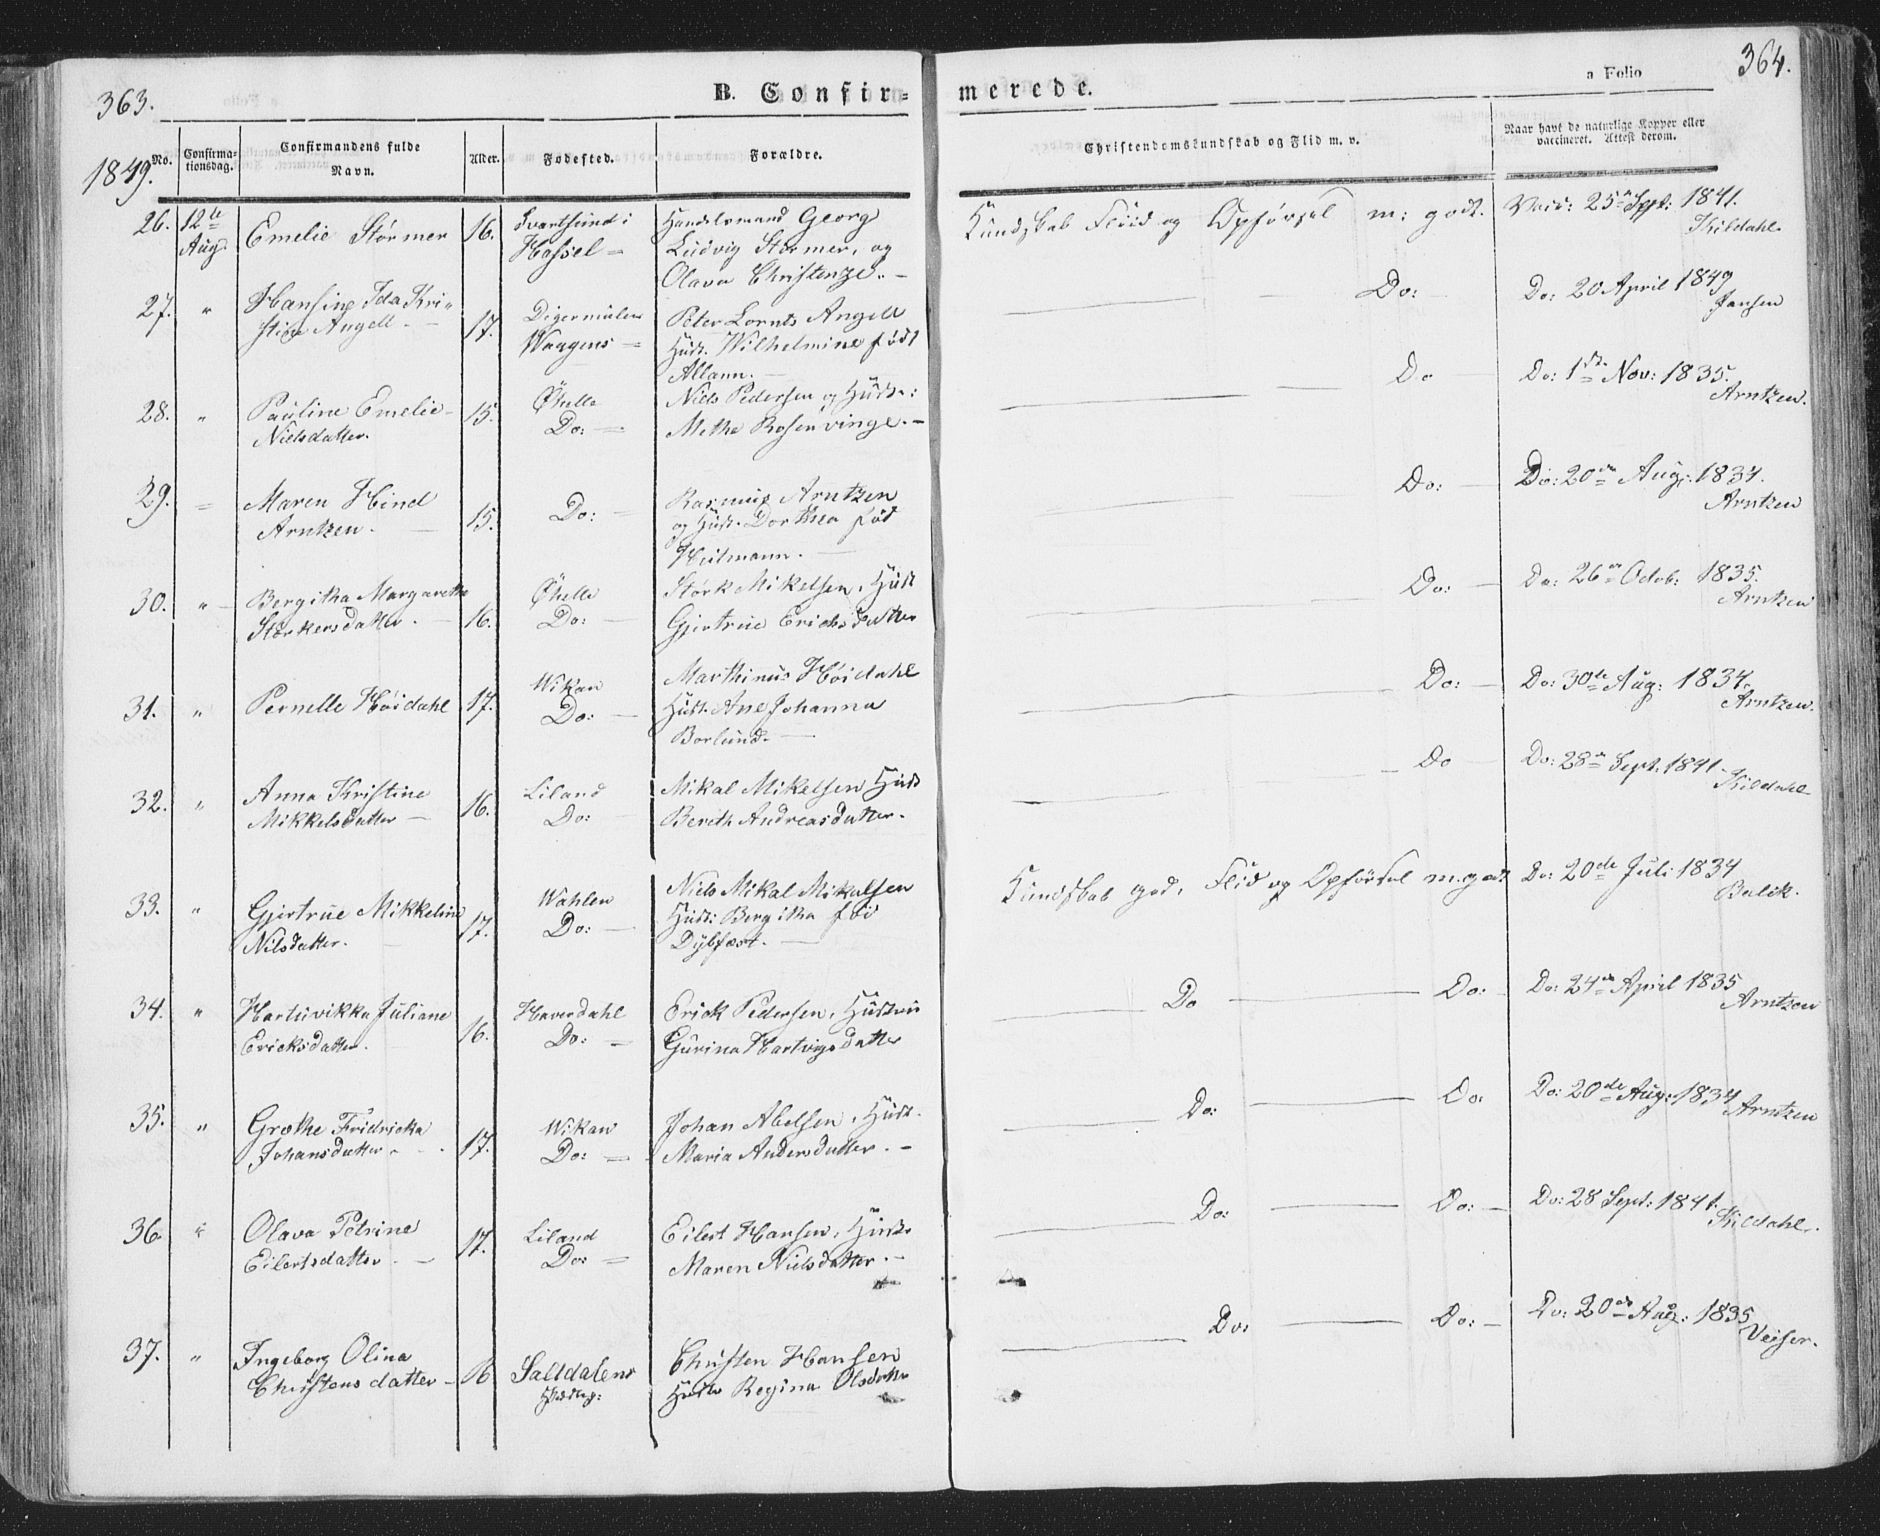 363.
B. Confir-
merede.
a Folio
364.
1849.
No.
Confirma-
tionsdag.
Confirmandens fulde
Navn.
Alder.
Fødested.
Forældre.
Christendomskundskab og Flid m. v.
Naar havt de naturlige Kopper eller
vaccineret. Attest derom.
26. 12te Aug. Emelie Størmer 16. Svartsund i Hassel = Handelsmand Georg
Ludvig Størmer, og
Olava Christenze. -
Kundskab Fliid og Opførsel m: godt. 25 Sept: 1841.
Kildahl.
27. " Hansine Ida Kri-
stine Angell. - 17. Digermulen
Waagens = Peter Lornts Angell
Hust. Wilhelmine født
Allann. -
Do: Do: 20 April 1849
Jansen
28. " Pauline Emelie
Nielsdatter. 15. Øhelle
Do: = Niels Pedersen og Hustr:
Methe Rosenvinge. -
Do Do: 1ste Nov: 1835.
Arntzen.
29. = Maren Hind
Arntzen. - 15. Do: - Rasmus Arntzen
og Hust. Dorthea fød
Heilmann. -
Do: Do: 20de Aug: 1834.
Arntzen
30. " Bergitha Margarethe
Størkersdatter. - 16. Øhelle
Do: - Størk Mikelsen, Hust
Gjertrue Erichsdatter
Do: Do: 26 Octob: 1835.
Arntzen
31. " Pernelle Høidahl 17. Wikan
Do: - Marthinus Høidahl
Hust. Ane Johanna
Borlund. -
Do: Do: 30te Aug: 1834.
Arntzen.
32. " Anna Kristine
Mikkelsdatter - 16. Liland
Do: - Mikal Mikelsen Hust
Bereth Andreasdatter.
Do Do: 28 Sept: 1841
Kildahl
33. " Gjertrue Mikkeline
Nilsdatter. 17. Wahlen
Do: - Niels Mikal Mikalsen
Hust: Bergitha fød
Dybfæst. -
Kundskab god, Flid og Opførsel m. godt Do: 20de Juli 1834
Balck.
34. " Hartuvikka Juliane
Ericksdatter. 16. Haverdahl
Do: - Erick Pedersen, Hustru
Gurina Hartvigsdatter
Do Do: Do: 24de April 1835
Arntzen
35. " Grethe Fridricka
Johansdatter. 17. Wikan
Do: = Johan Abelsen, Hust.
Maria Andersdatter. -
Do: Do: Do: 20de Aug: 1834
Arntzen
36. " Olava Petrine
Eilertsdatter. - 17. Liland
Do: = Eilert Hansen, Hustr
Maren Nielsdatter. -
Do: Do: Do: 28 Sept: 1841.
Kildahl.
37. " Ingeborg Olina
Christensdatter - 16 Saltdalens
Christen Hansen
Hustr Regina Olsdatter
Do: Do: Do: 20de Aug: 1835